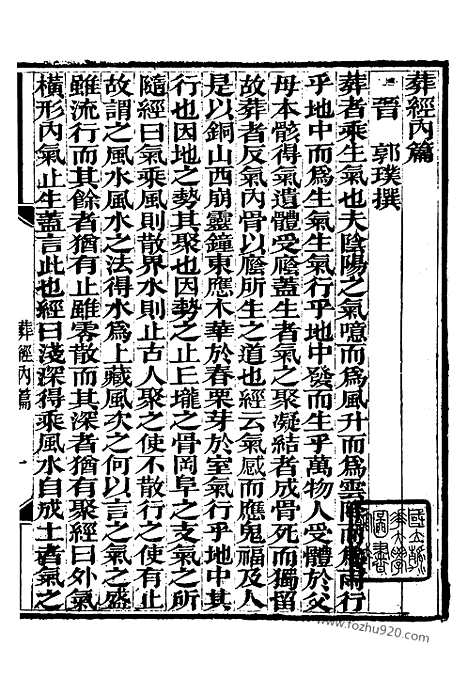 葬經內篇
晉 郭璞撰
葬者乘生氣也夫陰陽之氣噫而爲風升而爲雲降而爲雨行
乎地中而爲生氣生氣行乎地中發而生乎萬物人受體於父
母本骸得氣遺體受廕蓋生者氣之聚凝結者成骨死而獨留
故葬者反氣內骨以廕所生之道也經云氣感而應鬼福及人
是以銅山西崩靈鐘東應木華於春栗芽於室氣行乎地中其
行也因地之勢其聚也因勢之止丘壠之骨岡阜之支氣之所
隨經曰氣乘風則散界水則止古人聚之使不散行之使有止
故謂之風水風水之法得水爲上藏風次之何以言之氣之盛
雖流行而其餘者猶有止雖零散而其深者猶有聚經曰外氣
橫形內氣止生蓋言此也經曰淺深得乘風水自成土者氣之
葬經內篇
一
www.fozhu920.com